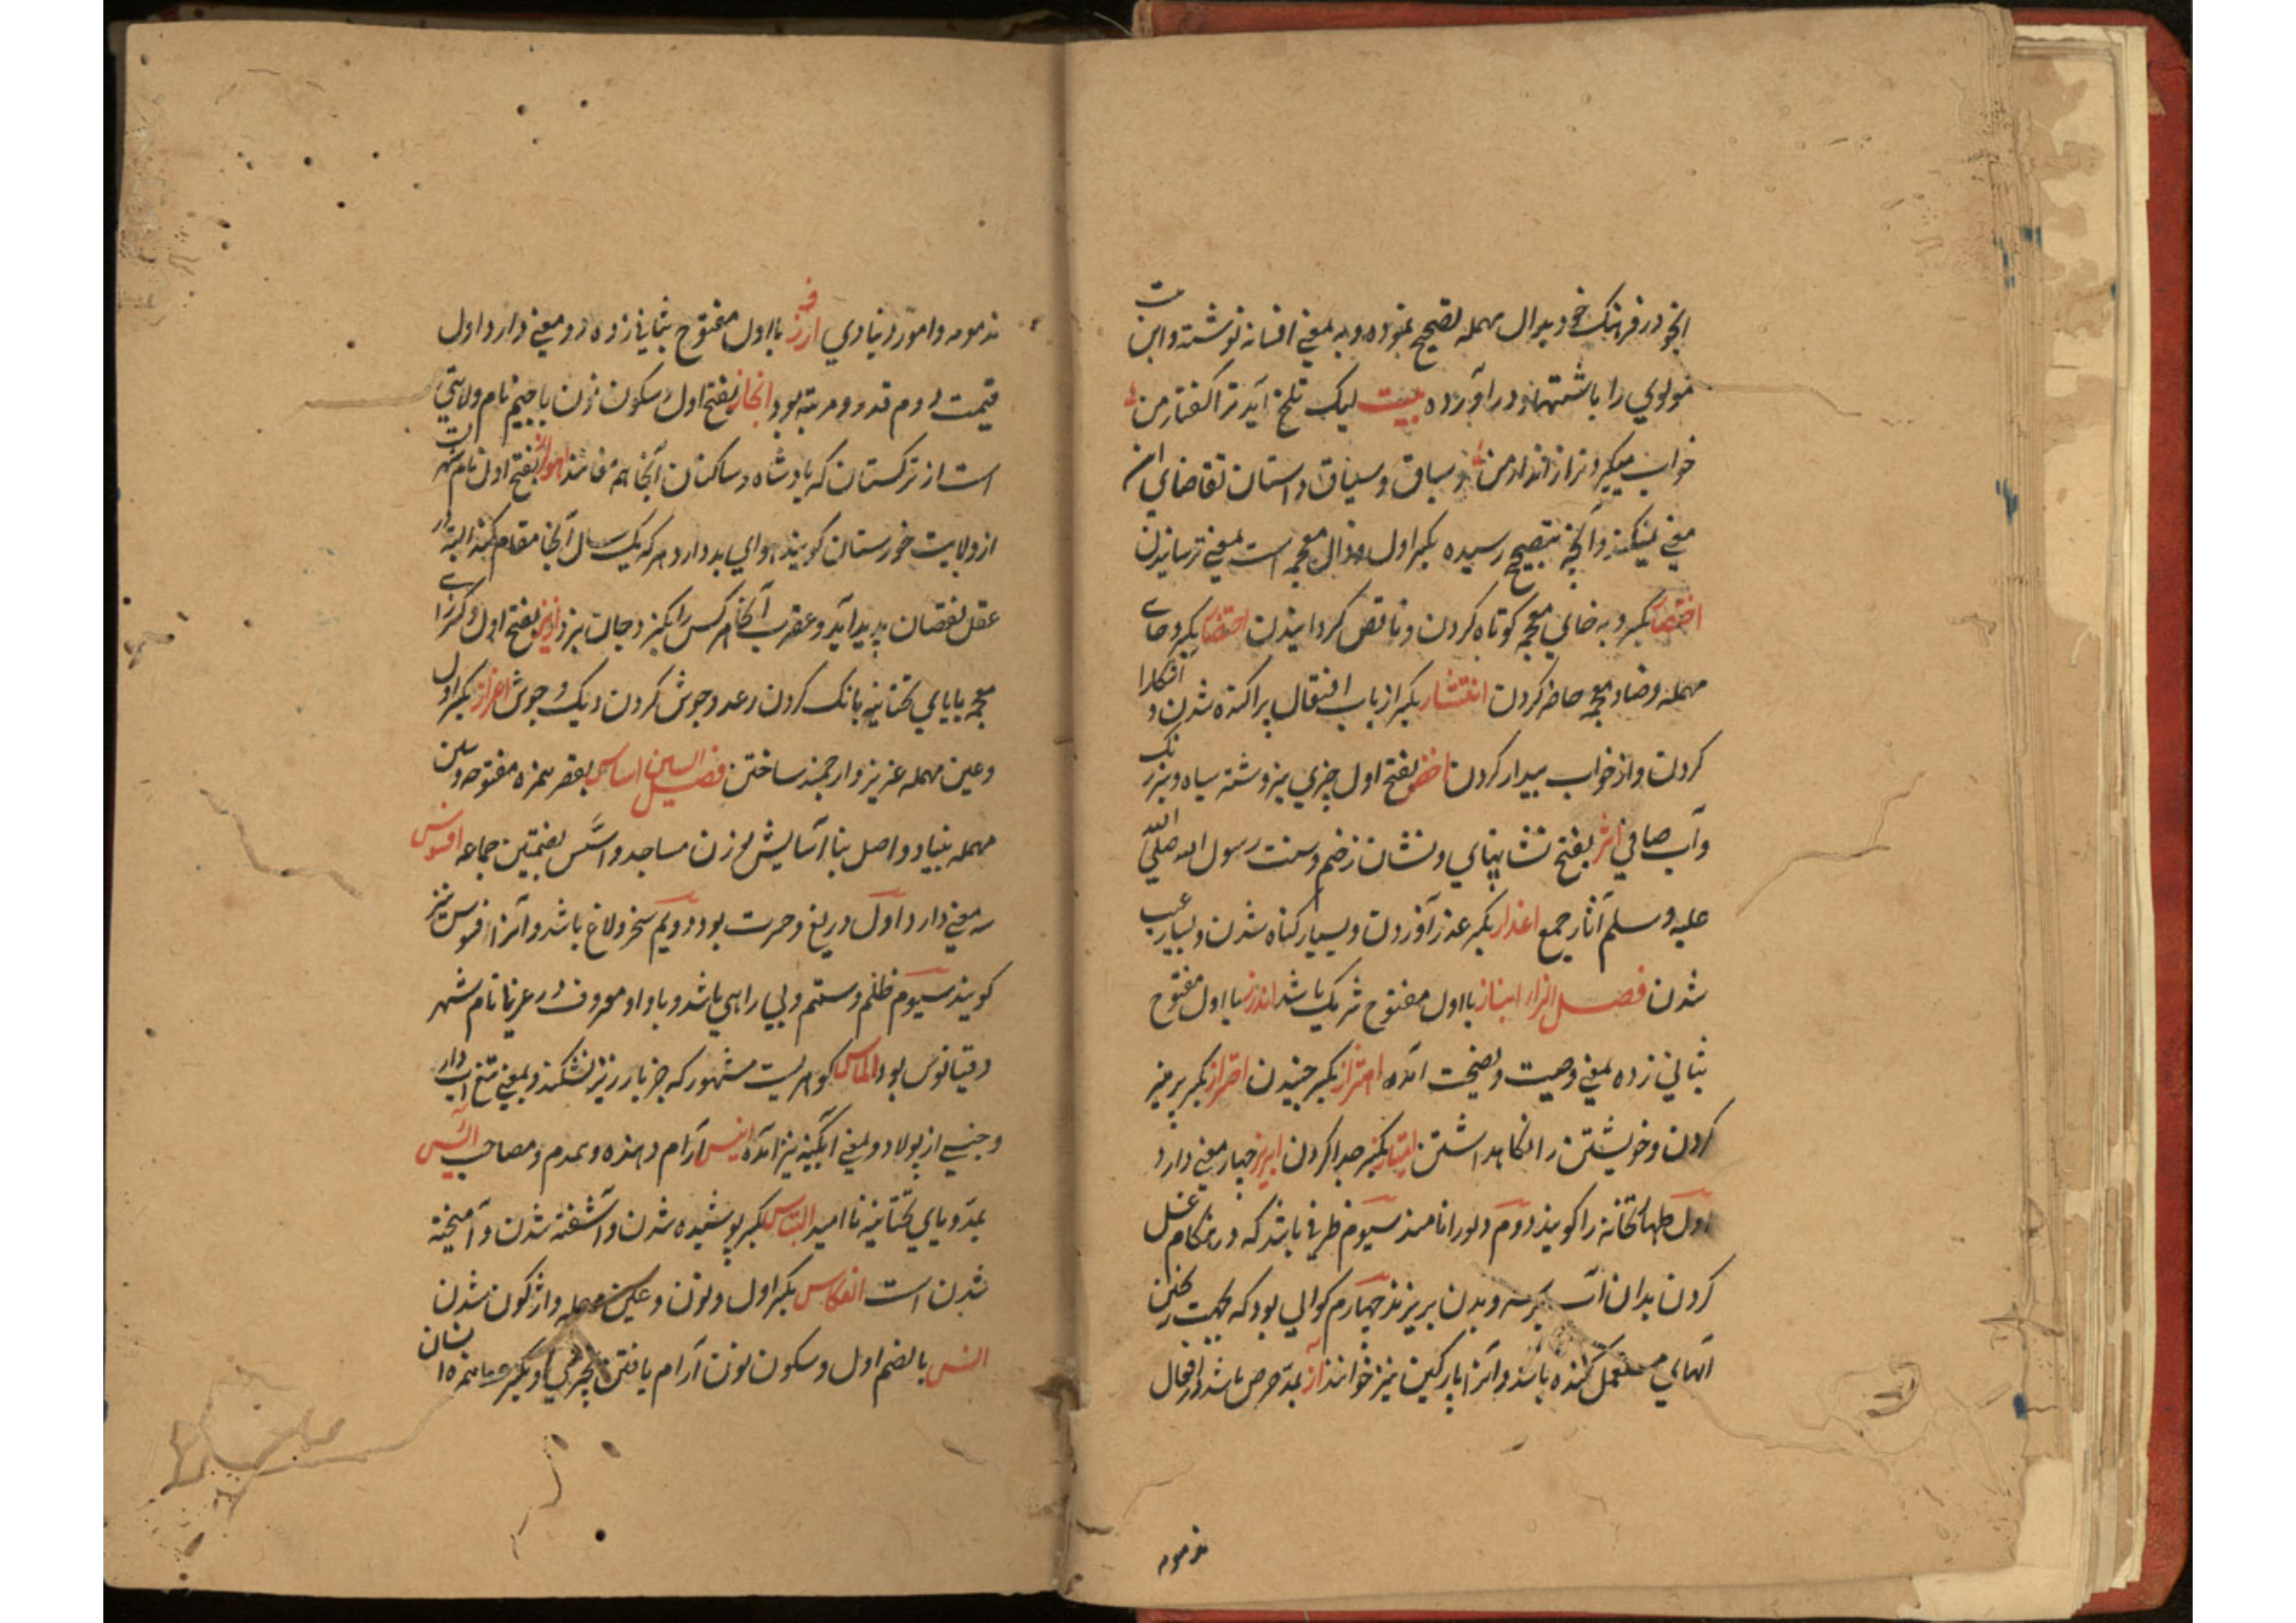 انجو در فرهنگ خود بدال مهمله تصحیح نموده و بمعنی افسانه نوشته و ابن بیت
مولوی را باشتهاد در آورده بیت لیک تلخ آید ترا گفتار من
خواب میگیرد ترا ز انذار من و سباق و سیاق داستان تقاضای این
معنی نمیکند و آنچه بتصحیح رسیده بکسر اول و ذال معجمه است بمعنی ترسانیدن
بکسر و به خای معجمه کوتاه کردن و ناقص کردانیدن احتضار بکسر و حای
مهمله و ضاد معجمه حاضر کردن انتشار بکسر از باب افتعال پراکنده شدن و آشکارا
کردن و از خواب بیدار کردن اخضر بفتح اول چیزی سبز و شته سیاه و سبز رنک
و آب صافی اثر بفتح نشان پای و نشان زخم و سنت رسول الله صلی الله
علیه و سلم آثار جمع اعذار بکسر عذر آوردن و بسیار کناه شدن و بسیار عیب
شدن فصل الزاء انباز با اول مفتوح شریک باشد اندرز با اول مفتوح
بثانی زده بمعنی وصیت و نصیحت آمده اهتزاز بکسر جنبیدن احتراز بکسر پرهیز
کردن و خویشتن را نکاهداشتن امتیاز بکسر جدا کردن ابریز چهار معنی دارد
اول طهارتخانه را کویند دوم دلو را نامند سیوم ظرفی باشد که در هنکام غسل
کردن بدان آب بر سر و بدن بریزند چهارم کوالی بود که بجهت ریختن
آبهای مستعمل کنده باشند و آنرا پارکین نیز خوانند آز بمد حرص باشد در افعال
مذمومه
مذمومه و امور دنیاوی ارز با اول مفتوح بثانی زده دو معنی دارد اول
قیمت دوم قدر و مرتبه بود انجاز بفتح اول و سکون نون با جیم نام ولایتی
است از ترکستان که پادشاه و ساکنان آنجا اهواز بفتح اول نام شهریست
از ولایت خوزستان کویند هوای بد دارد هر که یک سال آنجا مقام کند البته در
عقل نقصان پدید آید و عقرب آنجا هر کس را بکزد جان نبرد ازیز بفتح اول و کسر زای
معجمه بایای تحتانیه بانک کردن رعد و جوش کردن دیک و جوش اعزاز بکسر اول
و عین مهمله عزیز و ارجمند ساختن فصل السین اساس بقصر همزه مفتوحه و سین
مهمله بنیاد و اصل بنا مساجد و اسس بضمتین جماعه افسوس
سه معنی دارد اول دریغ و حسرت بود دویم سخر و لاغ باشد و آنرا فسوس نیز
کویند سیوم ظلم و ستم و بی راهی باشد و باواو معروف در عربی نام شهر
دقیانوس بود الماس کوهریست مشهور که جز بارزیز نشکند و بمعنی تیغ آبدار
و جنسی از پولاد و بمعنی آبکینه نیز آمده انیس آرام دهنده و همدم و مصاحب ائس
بمد و یای تحتانیه نا امید التباس بکسر پوشیده شدن و آشفته شدن و آمیخته
شدن است انعکاس بکسر اول و نون و عین مهمله واژکون شدن
انس بالضم اول و سکون نون آرام یافتن بچیزی و بکسر همزه